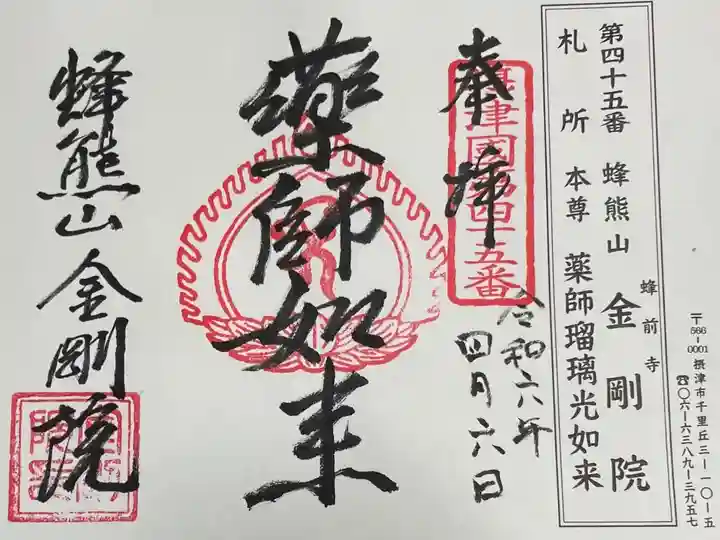 第四十五番 蜂熊山 金剛院
蜂前寺
札所 本尊 薬師瑠璃光如来
〒566-0001 摂津市千里丘三-一〇-五
☎〇六-六三八九-三九五七
奉拝
摂津國第四十五番
令和六年
四月六日
薬師如来
蜂熊山 金剛院